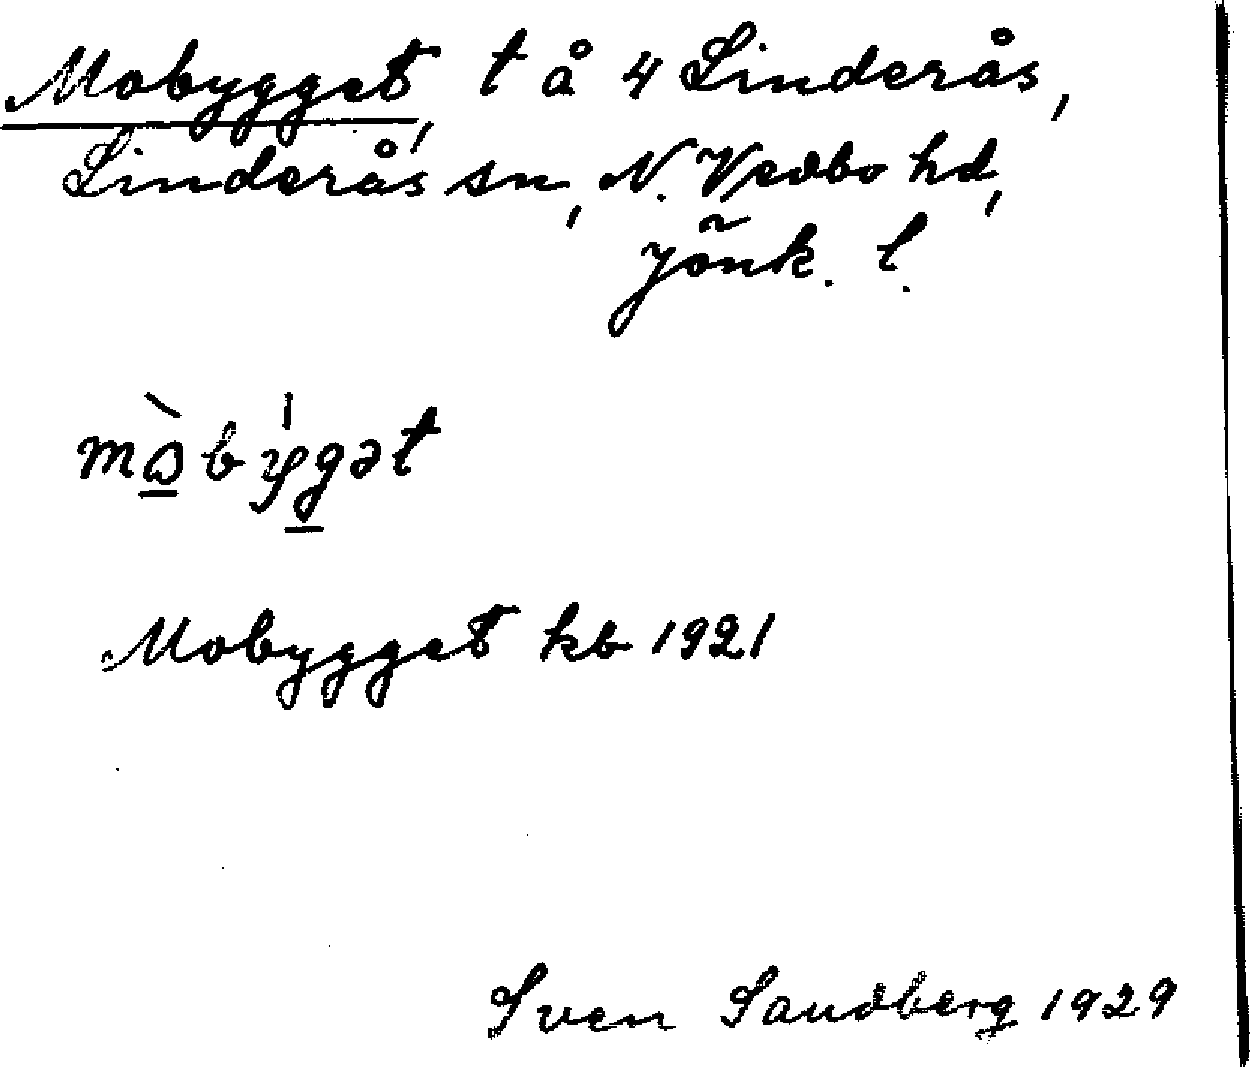 Mobygget, t å 4 Linderås,
Linderås sn, N. Vedbo hd,
Jönk. l.
mò̱bẏg̱ət
Mobygget kb 1921
Sven Sandberg 1929